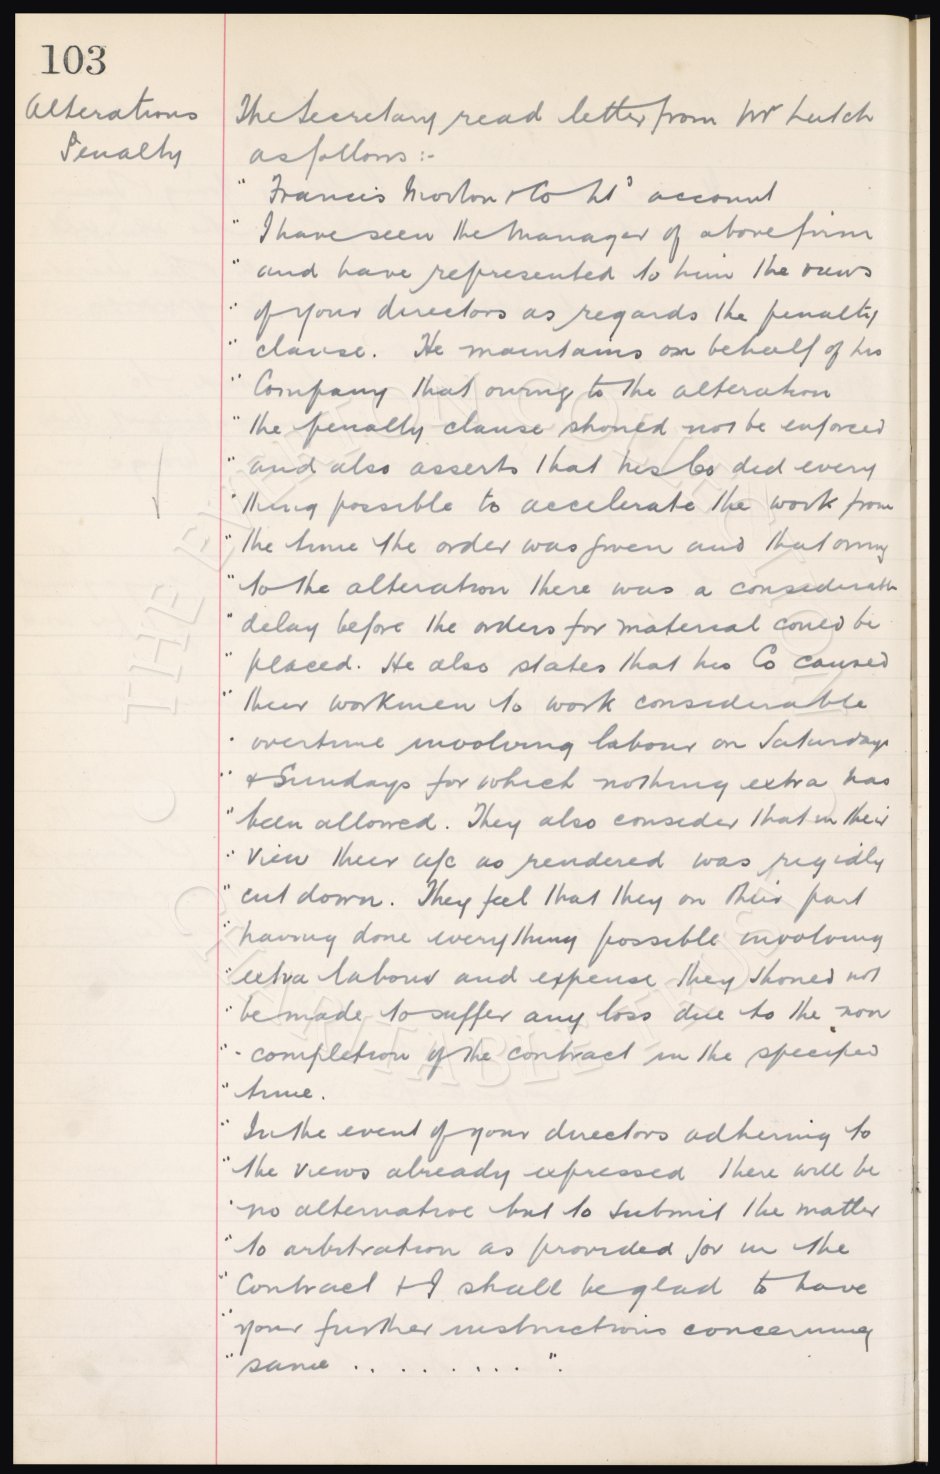 103
Alterations
Penalty
The Secretary read letter from Mr Leitch
as follows :-
" Francis Morton & Co Ltd account
" I have seen the Manager of above firm
" and have represented to him the views
" of your directors as regards the penalty
" clause. He maintains on behalf of his
" Company that owing to the alteration
" the penalty clause should not be enforced
" and also asserts that his Co did every
" thing possible to accelerate the work from
" the time the order was given and that owing
" to the alteration there was a considerable
" delay before the orders for material could be
" placed. He also states that his Co caused
" their workmen to work considerable
" overtime involving labour on Saturdays
" & Sundays for which nothing extra has
" been allowed. They also consider that in their
" view their a/c as rendered was rigidly
" cut down. They feel that they on their part
" having done everything possible involving
" extra labour and expense they should not
" be made to suffer any loss due to the non
" - completion of the contract in the specified
" time.
" In the event of your directors adhering to
" the views already expressed there will be
" no alternative but to submit the matter
" to arbitration as provided for in the
" Contract & I shall be glad to have
" your further instructions concerning
" same . . . . . . . . ".